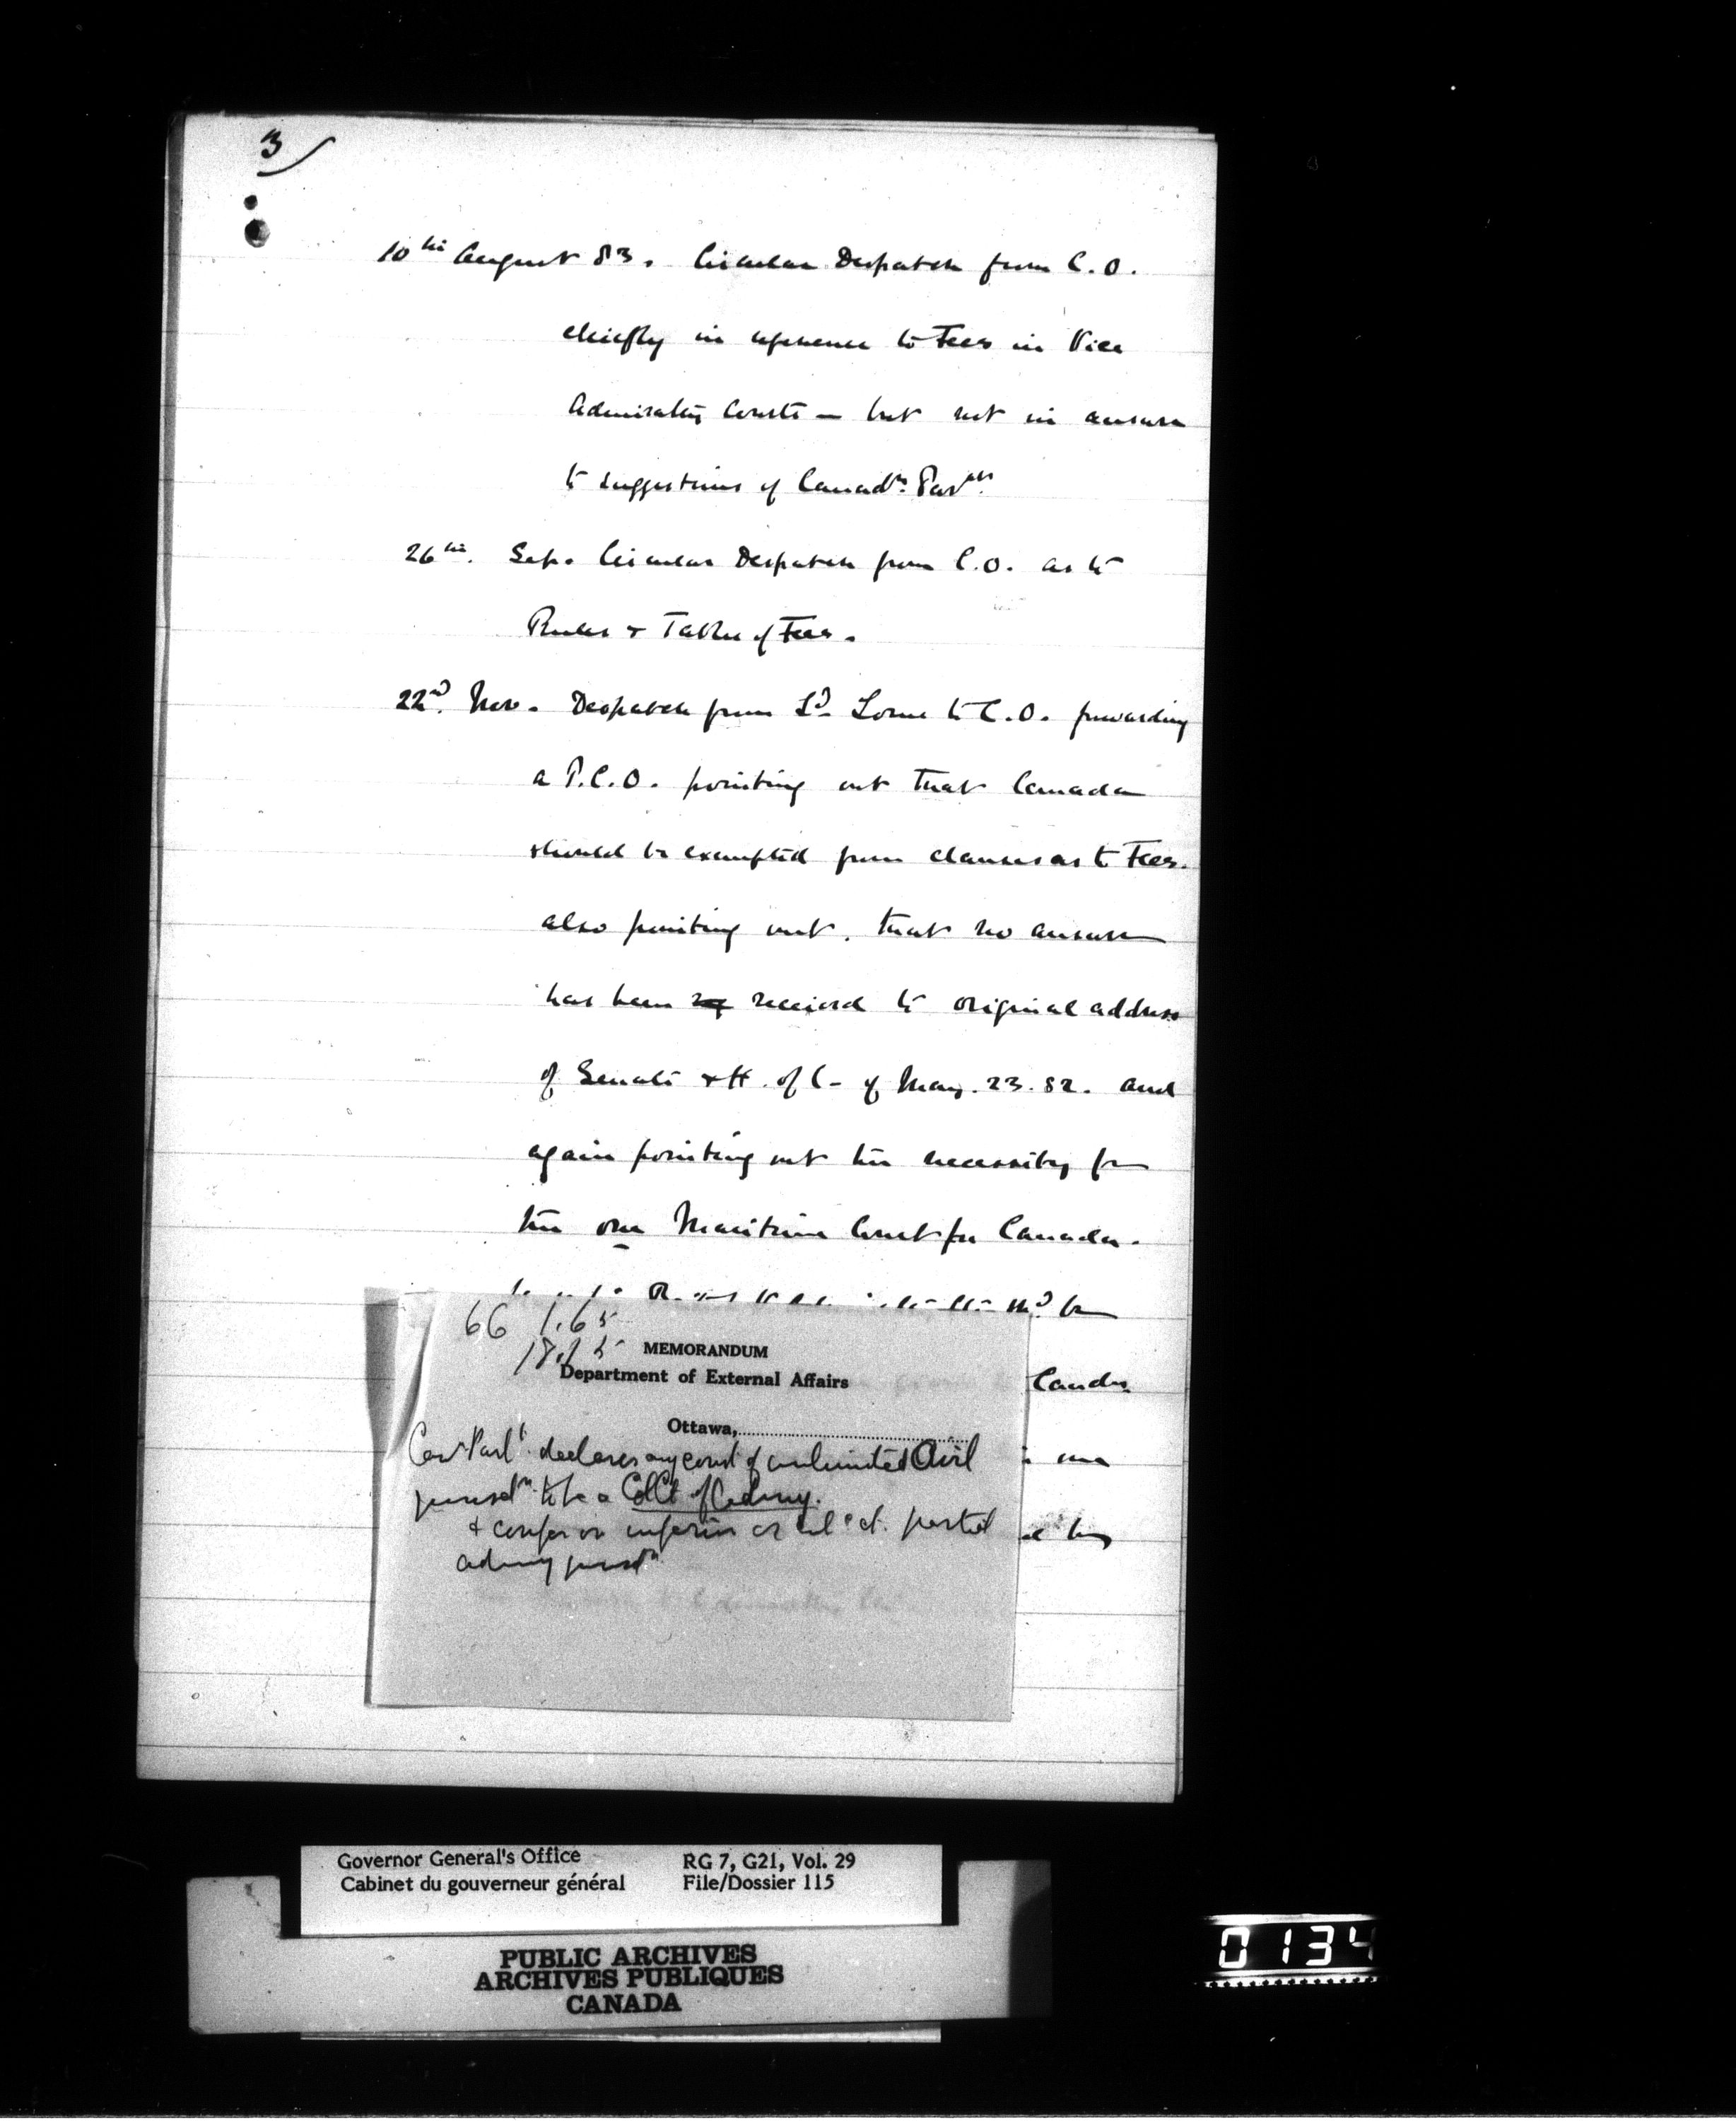 3/
10th August 83. Circular Despatch from C.O.
chiefly in reference to Fees in Vice
Admiralty Courts — but not in answer
to suggestions of Canadn. Parlt.
26th. Sep. Circular Despatch from C.O. as to
Rules & Table of Fees.
22nd. Nov. Despatch from Ld. Lorne to C.O. forwarding
a P.C.O. pointing out that Canada
should be exempted from clauses as to Fees.
also pointing out, that no answer
has been received to original address
of Senate & H. of C- of May. 23. 82. and
again pointing out the necessity for
the one Maritime Court for Canada.
be
66 1.65
18.15
MEMORANDUM
Department of External Affairs
Ottawa,
Canda.
Can Parlt. declares any court of unlimited Civil
jurisdn. to be a Col Ct of Admy.
& confer on inferior or ct. partial
admy jurisdn
Governor General's Office
Cabinet du gouverneur général
RG 7, G21, Vol. 29
File/Dossier 115
PUBLIC ARCHIVES
ARCHIVES PUBLIQUES
CANADA
0134